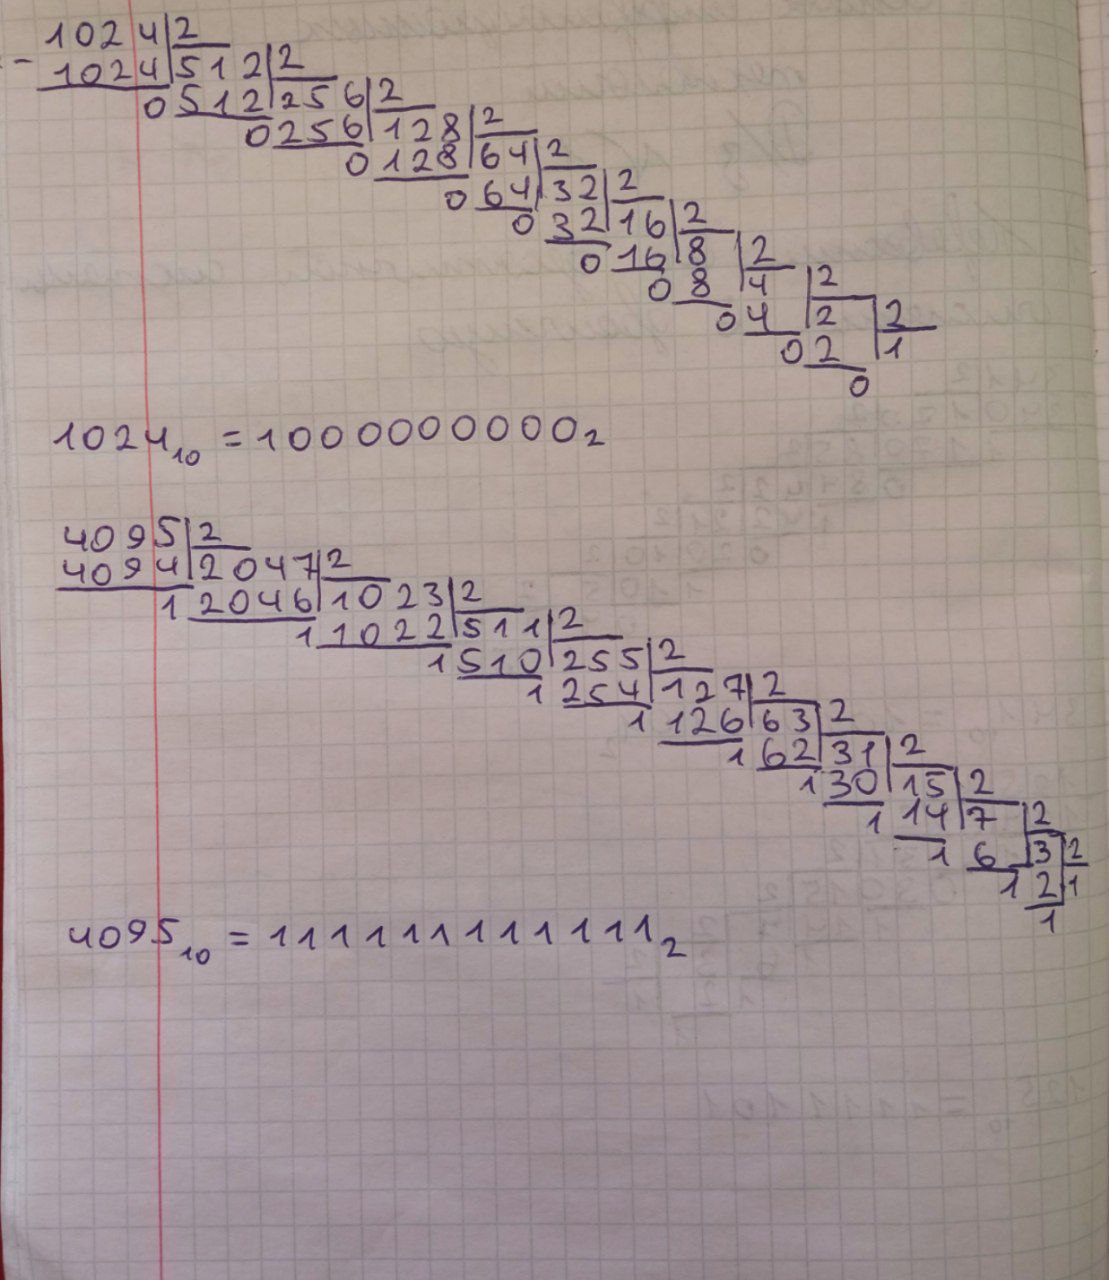 1024|2
- 1024|512|2
0 512|256|2
0 256|128|2
0 128|64|2
0 64|32|2
0 32|16|2
0 16|8|2
0 8|4|2
0 4|2|2
0 2|1
0
1024₁₀ = 10000000000₂
4095|2
4094|2047|2
1 2046|1023|2
1 1022|511|2
1 510|255|2
1 254|127|2
1 126|63|2
1 62|31|2
1 30|15|2
1 14|7|2
1 6|3|2
1 2|1
1
4095₁₀ = 111111111111₂